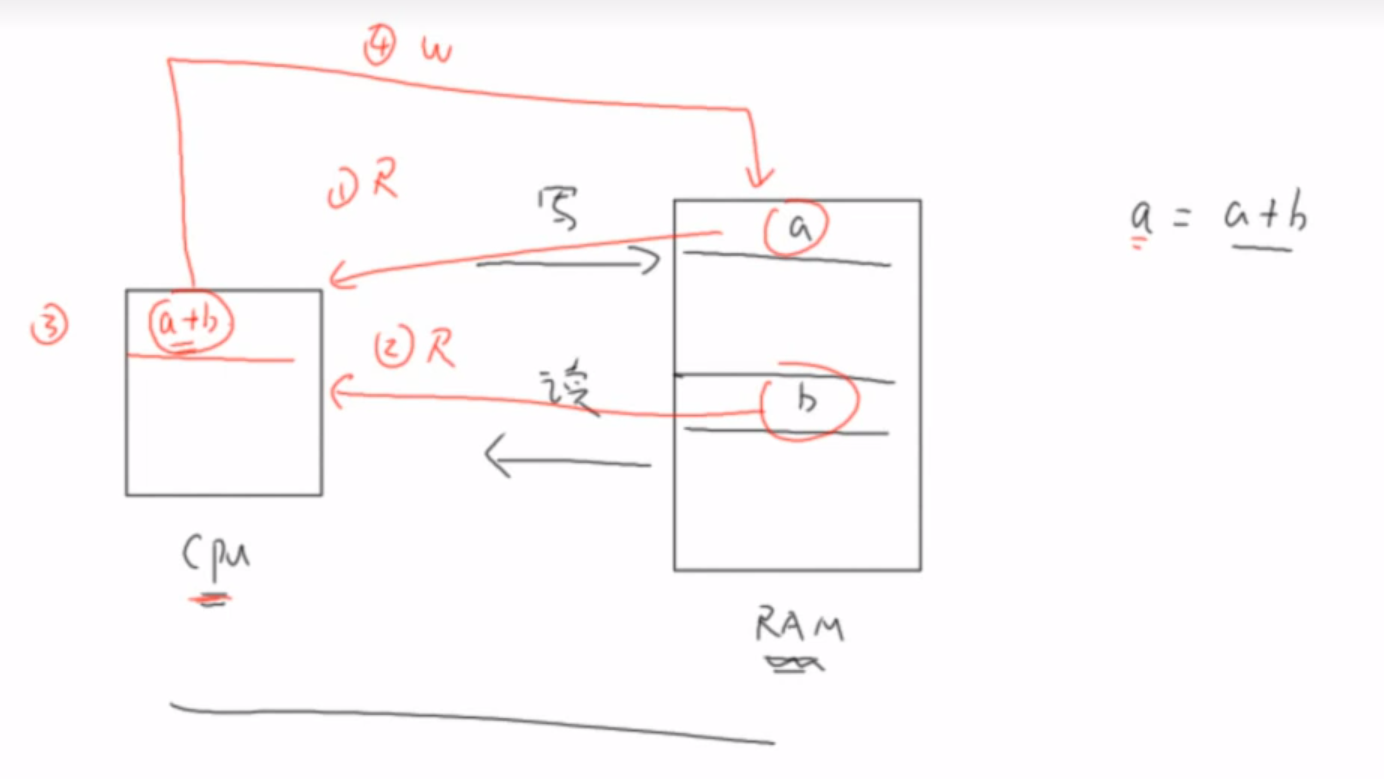 ④ W
① R
写
a
a = a+b
③
a+b
② R
读
b
CPU
RAM